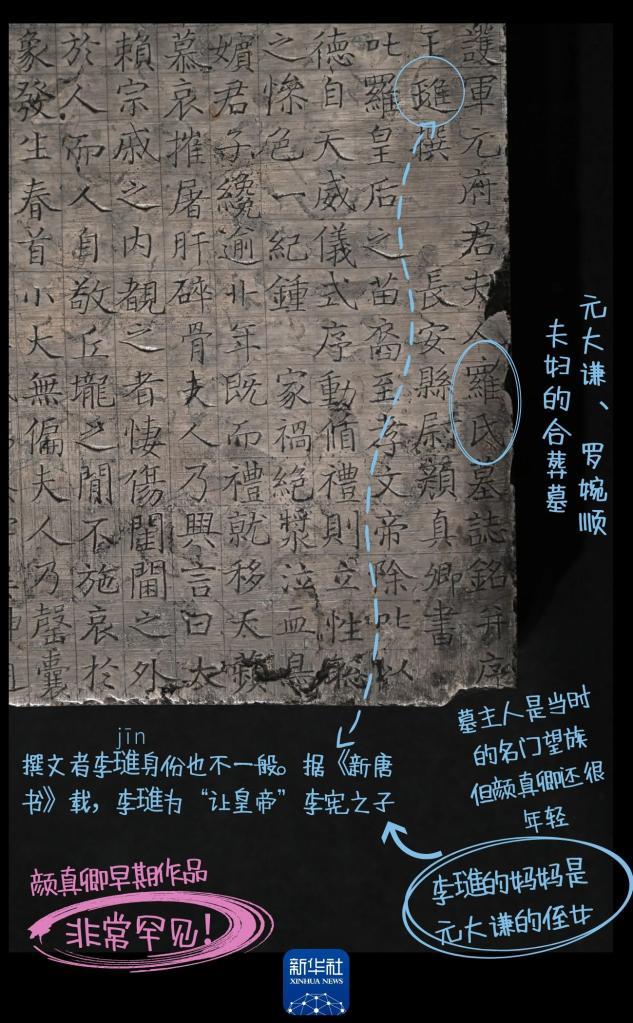 護軍元府君夫人羅氏墓誌銘并序
王璡撰 長安縣尉顏真卿書
叱羅皇后之苗裔至孝文帝除叱以
德自天威儀式序動循禮則立性聰
之慘色一紀鍾 家禍絕漿泣血
嬪君子纔逾卄年既而禮就移天蘋
慕哀摧屠肝碎骨夫人乃興言曰大
賴宗戚之內覩之者悽傷閨閫之外
於人而人自敬丘壠之閒不施哀於
象發生春首小大無偏夫人乃罄囊
元大谦、罗婉顺
夫妇的合葬墓
墓主人是当时
的名门望族
但颜真卿还很
年轻
jīn
撰文者李琎身份也不一般。据《新唐
书》载，李琎为“让皇帝”李宪之子
李琎的妈妈是
元大谦的侄女
颜真卿早期作品
非常罕见！
新华社
XINHUA NEWS